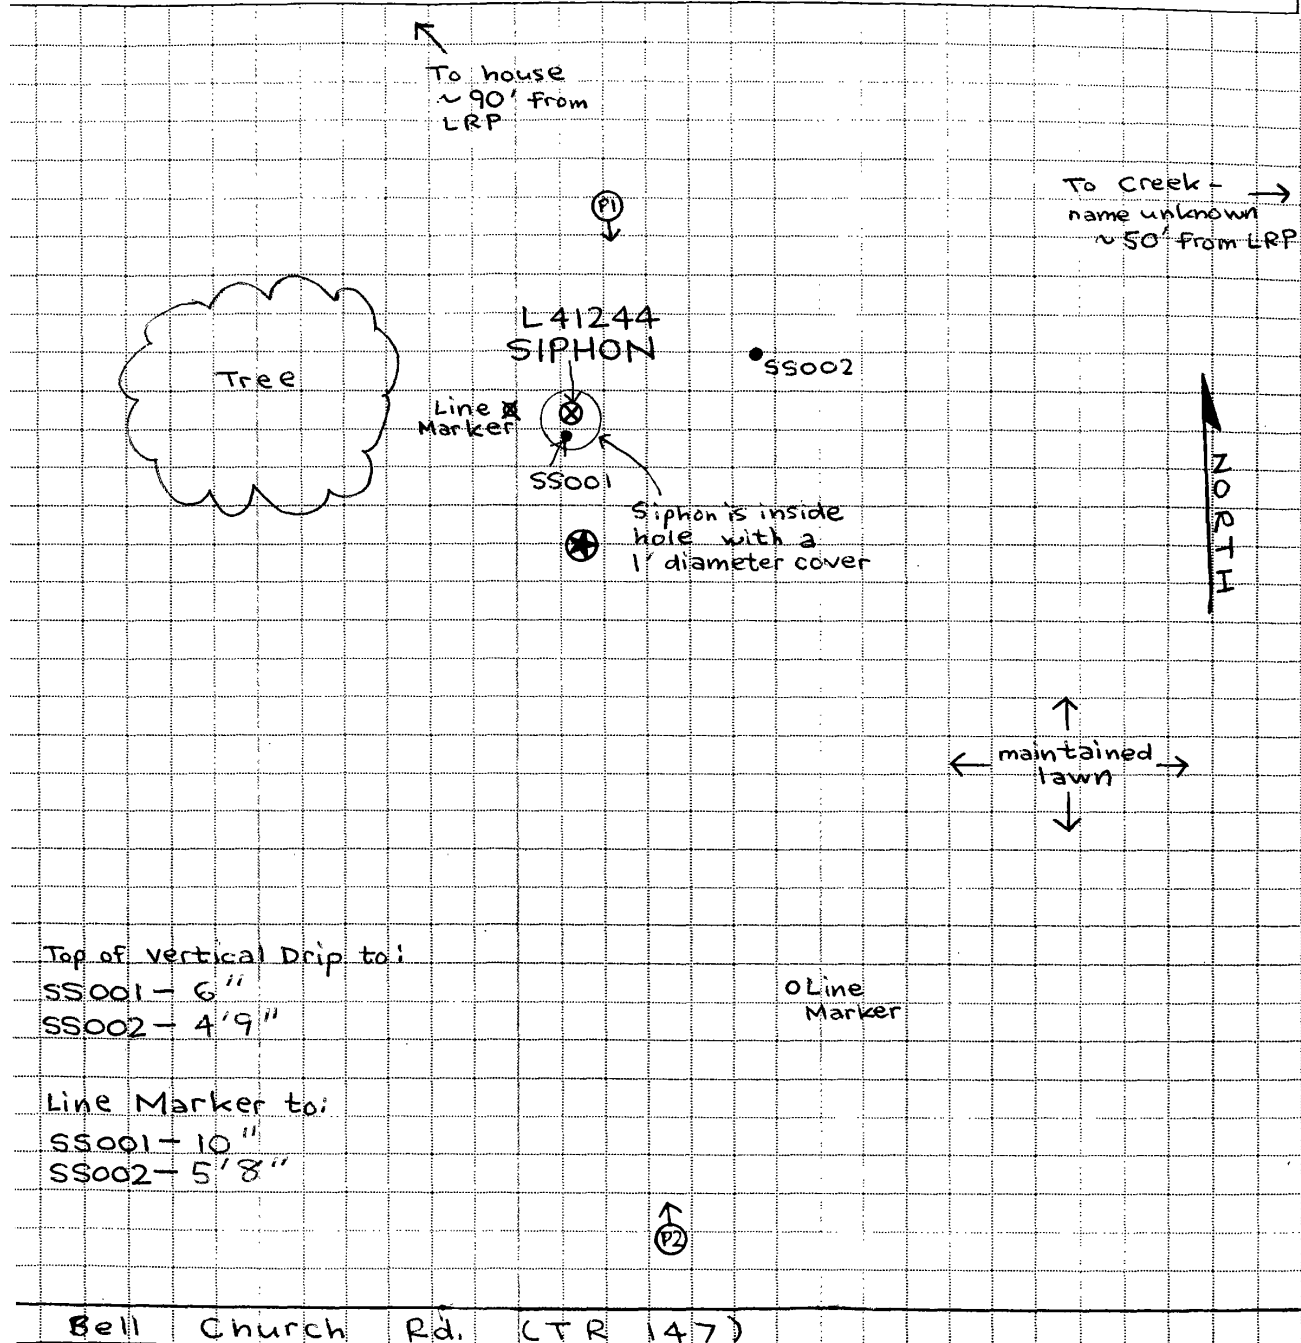 To house
~ 90' from
LRP
P1
To Creek -
name unknown
~ 50' from LRP
L41244
SIPHON
Tree
SS002
Line
Marker
SS001
Siphon is inside
hole with a
1' diameter cover
NORTH
maintained
lawn
Top of Vertical Drip to:
SS001 - 6"
SS002 - 4'9"
Line
Marker
Line Marker to:
SS001 - 10"
SS002 - 5'8"
P2
Bell Church Rd. (TR 147)